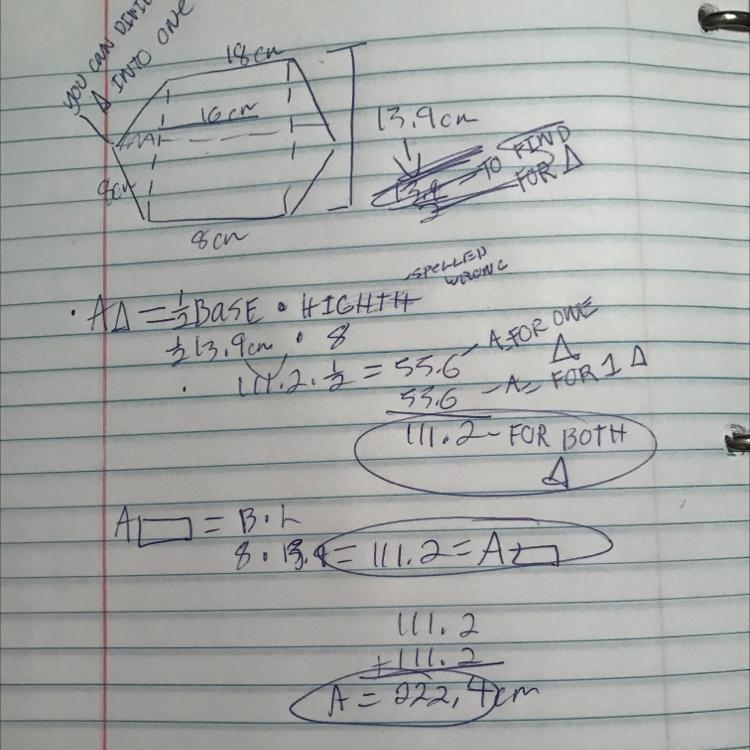 YOU CAN DIVID
Δ INTO ONE
18cm
16cm
13.9cm
8cm
8cm
TO FIND
FOR Δ
SPELLED
WRONG
· AΔ = ½ BASE · HIGHTH
½ 13.9cm · 8
111.2 · ½ = 55.6 - A FOR ONE
Δ
55.6 - A= FOR 1 Δ
111.2 - FOR BOTH
Δ
A▭ = B·L
8 · 13.9 = 111.2 = A▭
111.2
+111.2
A = 222.4cm